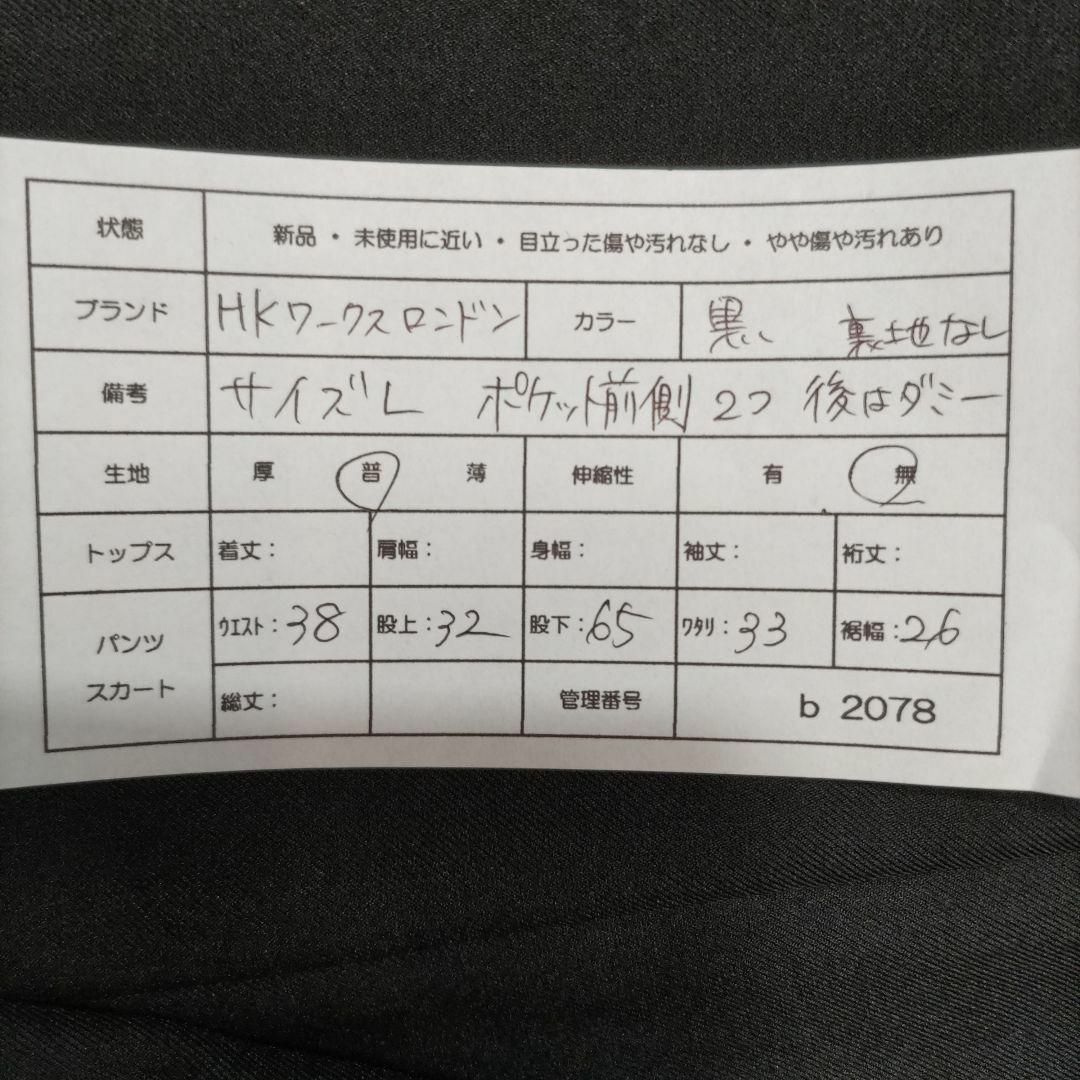 状態 新品 ・ 未使用に近い ・ 目立った傷や汚れなし ・ やや傷や汚れあり
ブランド HKワークスロンドン カラー 黒 裏地なし
備考 サイズL ポケット前側2つ 後はダミー
生地 厚 普 薄 伸縮性 有 無
トップス 着丈： 肩幅： 身幅： 袖丈： 裄丈：
パンツ スカート ウエスト：38 股上：32 股下：65 ワタリ：33 裾幅：26
総丈： 管理番号 b 2078